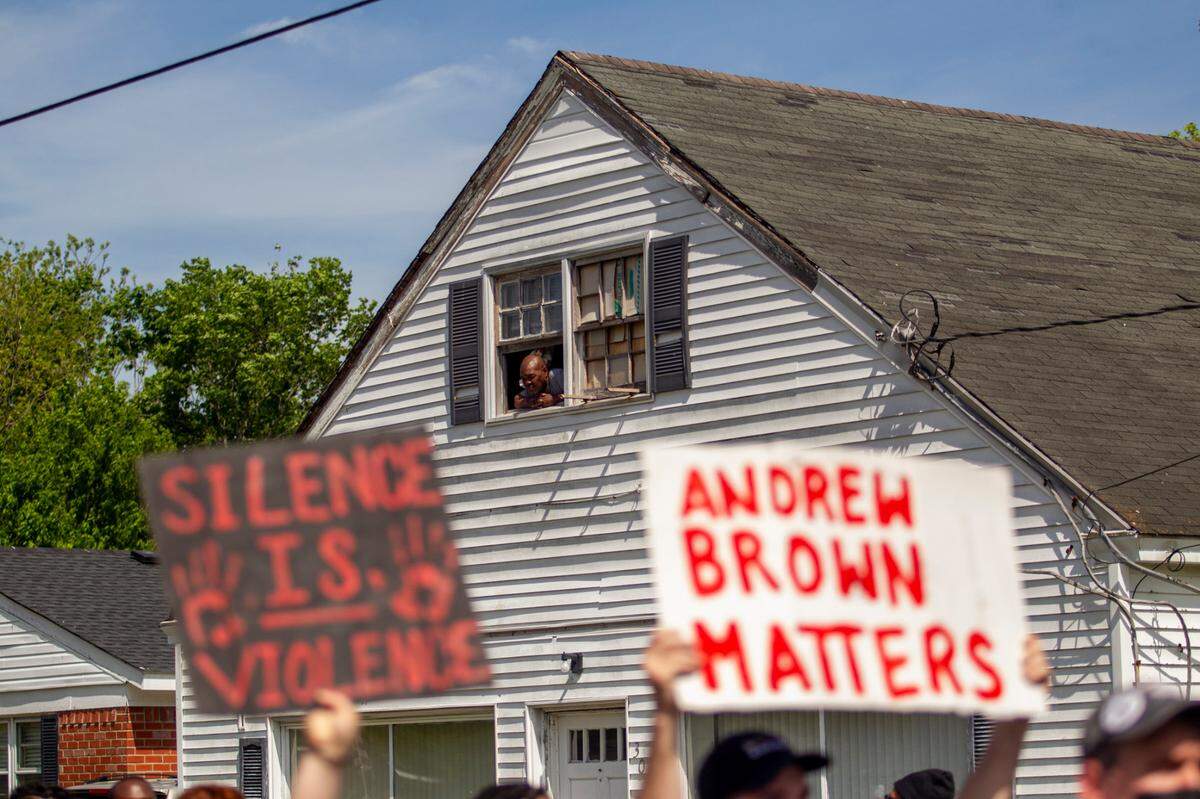 SILENCE
IS.
VIOLENCE
ANDREW
BROWN
MATTERS